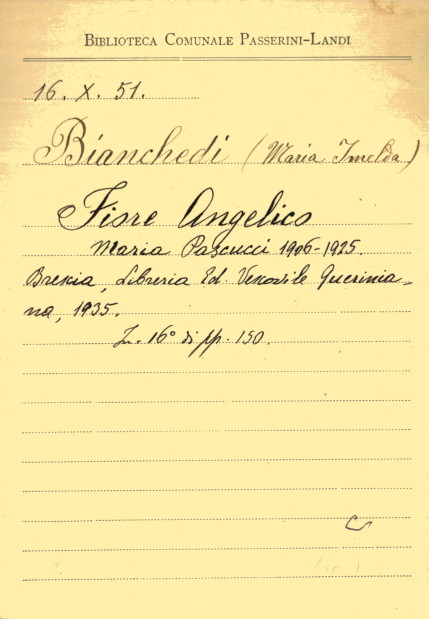 BIBLIOTECA COMUNALE PASSERINI-LANDI
16. X. 51.
Bianchedi (Maria Imelda)
Fiore Angelico
Maria Pascucci 1906-1925.
Brescia, Libreria Ed. Vescovile Querinia-
na, 1935.
In. 16° di pp. 150.